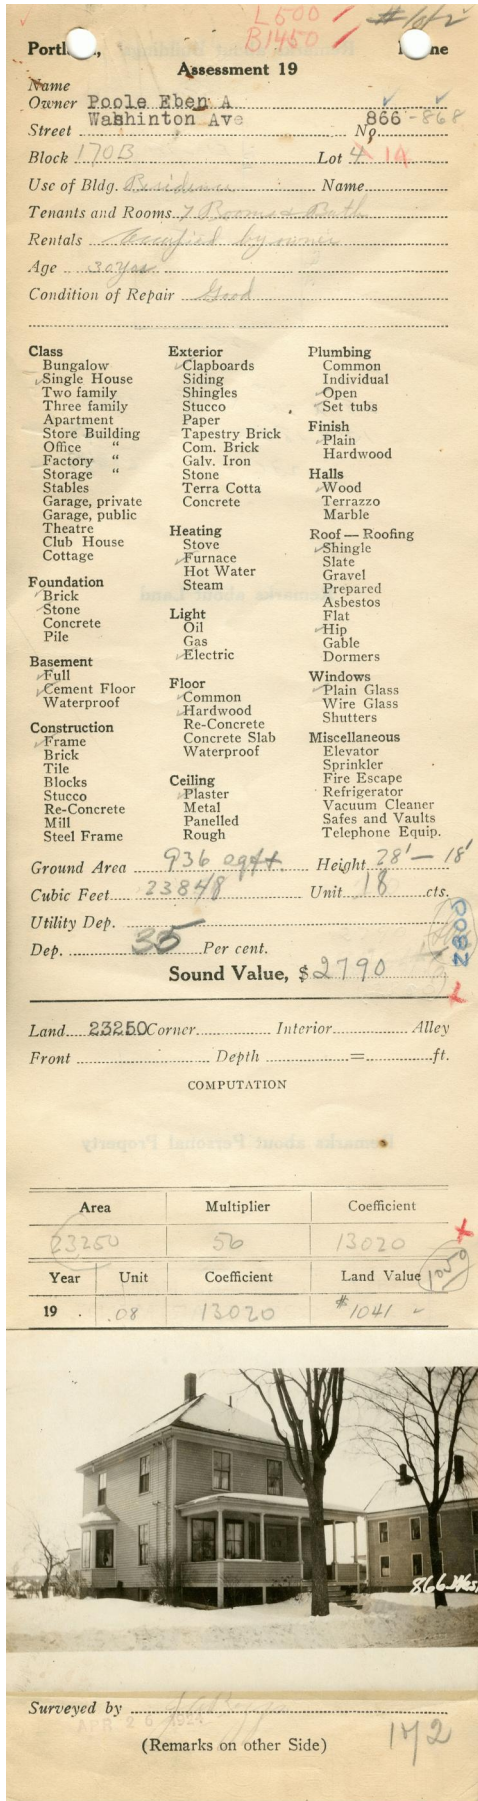 L500
B1450
# 1 of 2
Portland, Maine
Assessment 19
Name
Owner Poole Eben A
Street Washinton Ave No. 866-868
Block 170B Lot 4 14
Use of Bldg. Residence Name
Tenants and Rooms 7 Rooms & Bath
Rentals occupied by owner
Age 30 yrs
Condition of Repair Good
Class
Bungalow
Single House
Two family
Three family
Apartment
Store Building
Office "
Factory "
Storage "
Stables
Garage, private
Garage, public
Theatre
Club House
Cottage
Foundation
Brick
Stone
Concrete
Pile
Basement
Full
Cement Floor
Waterproof
Construction
Frame
Brick
Tile
Blocks
Stucco
Re-Concrete
Mill
Steel Frame
Exterior
Clapboards
Siding
Shingles
Stucco
Paper
Tapestry Brick
Com. Brick
Galv. Iron
Stone
Terra Cotta
Concrete
Heating
Stove
Furnace
Hot Water
Steam
Light
Oil
Gas
Electric
Floor
Common
Hardwood
Re-Concrete
Concrete Slab
Waterproof
Ceiling
Plaster
Metal
Panelled
Rough
Plumbing
Common
Individual
Open
Set tubs
Finish
Plain
Hardwood
Halls
Wood
Terrazzo
Marble
Roof — Roofing
Shingle
Slate
Gravel
Prepared
Asbestos
Flat
Hip
Gable
Dormers
Windows
Plain Glass
Wire Glass
Shutters
Miscellaneous
Elevator
Sprinkler
Fire Escape
Refrigerator
Vacuum Cleaner
Safes and Vaults
Telephone Equip.
Ground Area 936 sq ft. Height 28' — 18'
Cubic Feet 23848 Unit 18 cts.
Utility Dep.
Dep. 35 Per cent.
2800
Sound Value, $ 2790
Land 23250 Corner Interior Alley
Front Depth = ft.
COMPUTATION
Remarks about Personal Property
Area Multiplier Coefficient
23250 56 13020
Year Unit Coefficient Land Value 1050
19 .08 13020 $1041
866 Was
Surveyed by
APR 26 1924
(Remarks on other Side)
1 of 2